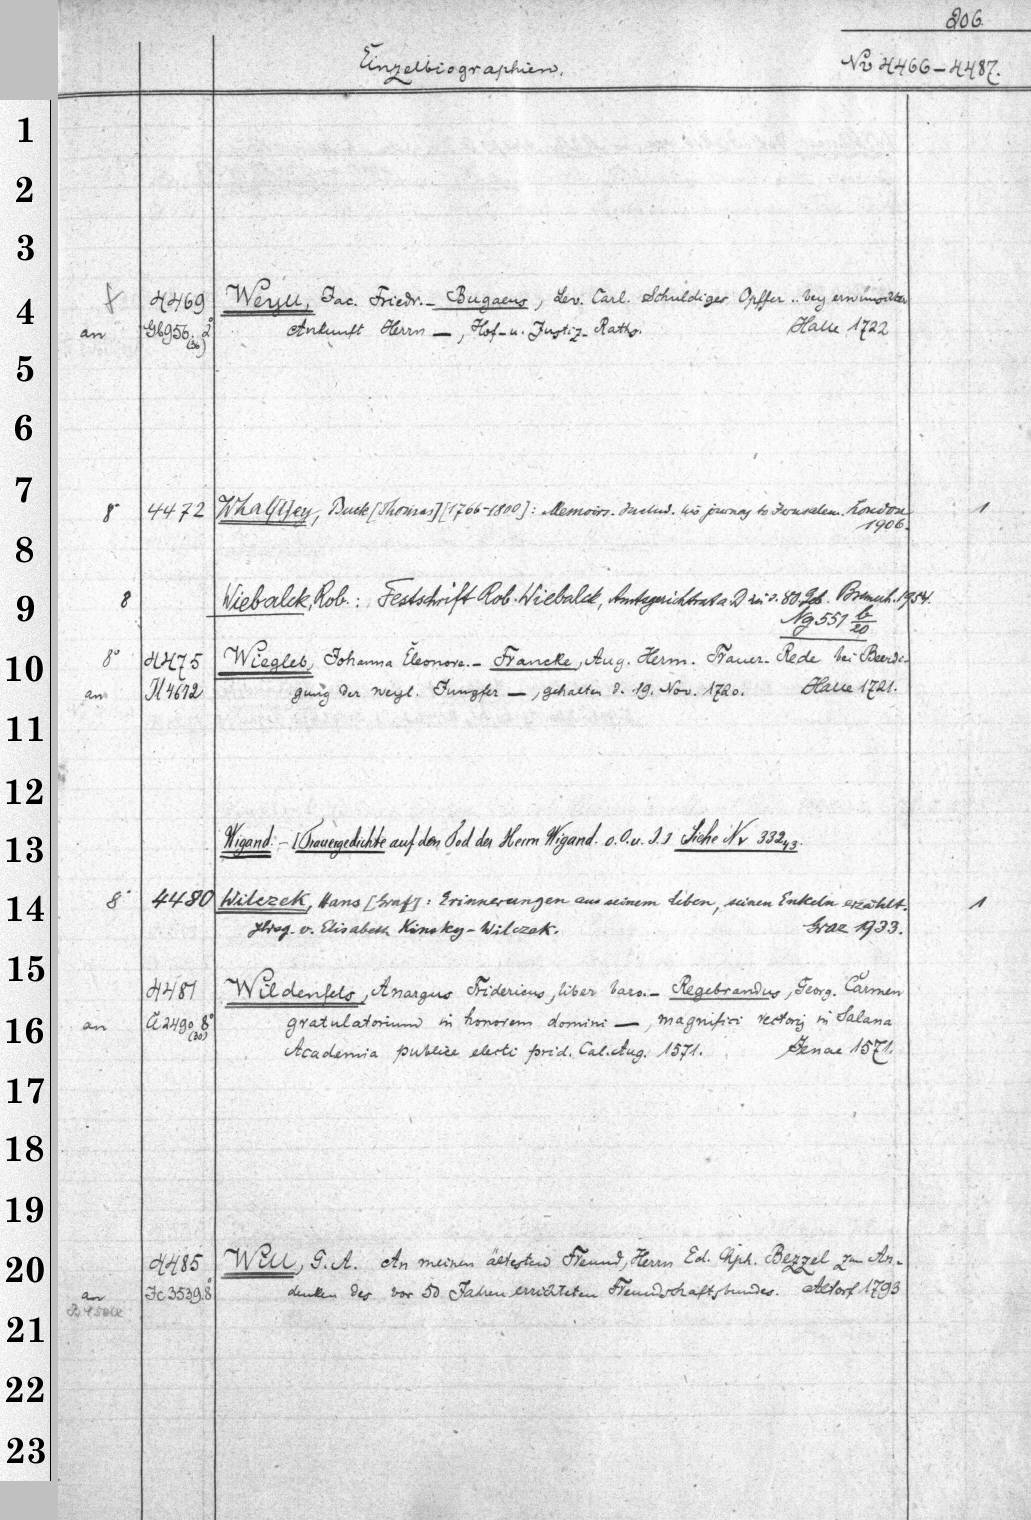 206
Einzelbiographien.
Nr 4466-4487.
1
2
3
4
4469 Weyll, Jac. Friedr. - Bugaeus, Lev. Carl. Schuldiges Opffer .. bey erwünschter
an Gb 956. 2° (36) Ankunft Herrn —, Hof- u. Justiz-Raths. Halle 1722
5
6
7
8° 4472 Whal[l]ey, Buck [Thomas] [1766-1800]: Memoirs. Includ. his journey to Jerusalem. London 1
1906.
8
8 Wiebalck, Rob.: Festschrift Rob. Wiebalck, Amtsgerichtsrat a. D. zu s. 80. Geb. Bremerh. 1954.
9
Ng 551 b/20
10
8° 4475 Wiegleb, Johanna Eleonora. - Francke, Aug. Herm. Trauer-Rede bei Beerdi-
an Il 4672 gung der weyl. Jungfer —, gehalten d. 19. Nov. 1720. Halle 1721.
11
12
13
Wigand. - [Trauergedichte auf den Tod des Herrn Wigand. o. O. u. J.] Siehe Nr 332,43.
14
8° 4480 Wilczek, Hans [Graf]: Erinnerungen aus seinem Leben, seinen Enkeln erzählt. 1
Hrsg. v. Elisabeth Kinsky-Wilczek. Graz 1933.
15
4481 Wildenfels, Anargus Fridericus, liber baro. - Regebrandus, Georg. Carmen
16
an 2490 8° (30) gratulatorium in honorem domini —, magnifici rectoris in Salana
Academia publice electi prid. Cal. Aug. 1571. Jenae 1571.
17
18
19
20
4485 Will, G. A. An meinen ältesten Freund, Herrn Ed. Chph. Bezzel zum An-
an Jc 3539 8° denken des vor 50 Jahren errichteten Freundschaftsbundes. Altorf 1793
21
22
23